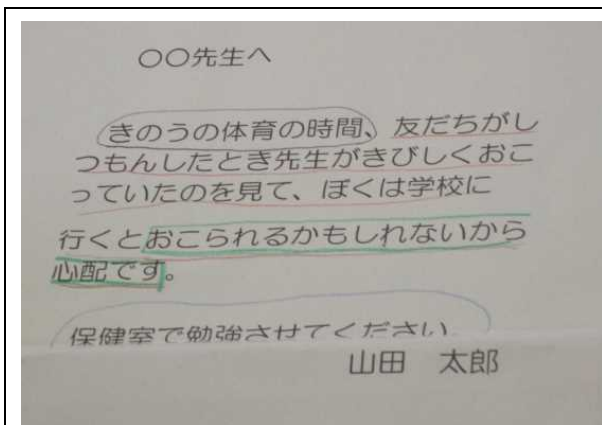 〇〇先生へ
きのうの体育の時間、友だちがし
つもんしたとき先生がきびしくおこ
っていたのを見て、ぼくは学校に
行くとおこられるかもしれないから
心配です。
保健室で勉強させてください。
山田 太郎